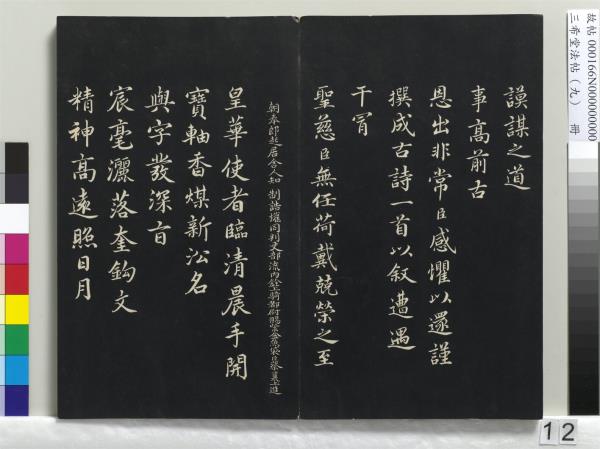 謨謀之道
事高前古
恩出非常臣感懼以還謹
撰成古詩一首以叙遭遇
干冐
聖慈臣無任荷戴兢榮之至
朝奉郎起居舍人知 制誥權同判吏部流內銓上騎都尉賜紫金魚袋臣蔡襄上進
皇華使者臨清晨手開
寶軸香煤新㳂名
與字發深旨
宸毫灑落奎鉤文
精神高遠照日月
故帖 000166N000000000
三希堂法帖（九） 冊
12